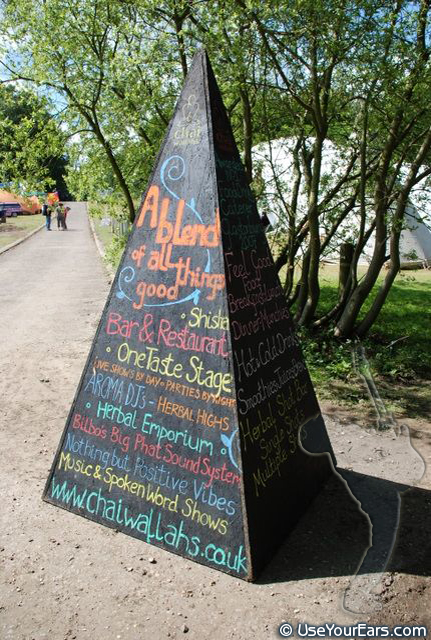 chai
A blend
of all things
good
• Shisha
Bar & Restaurant
• OneTaste Stage
LIVE SHOWS BY DAY • PARTIES BY NIGHT
AROMA DJ's - HERBAL HIGHS
• Herbal Emporium •
Bilbo's Big Phat Sound System
Nothing but Positive Vibes
Music & Spoken Word Shows
www.chaiwallahs.co.uk
Feel Good
Food
Breakfast
Dinner
Hot & Cold Drinks
Smoothies
Herbal Shot Bar
Single Shots
© UseYourEars.com